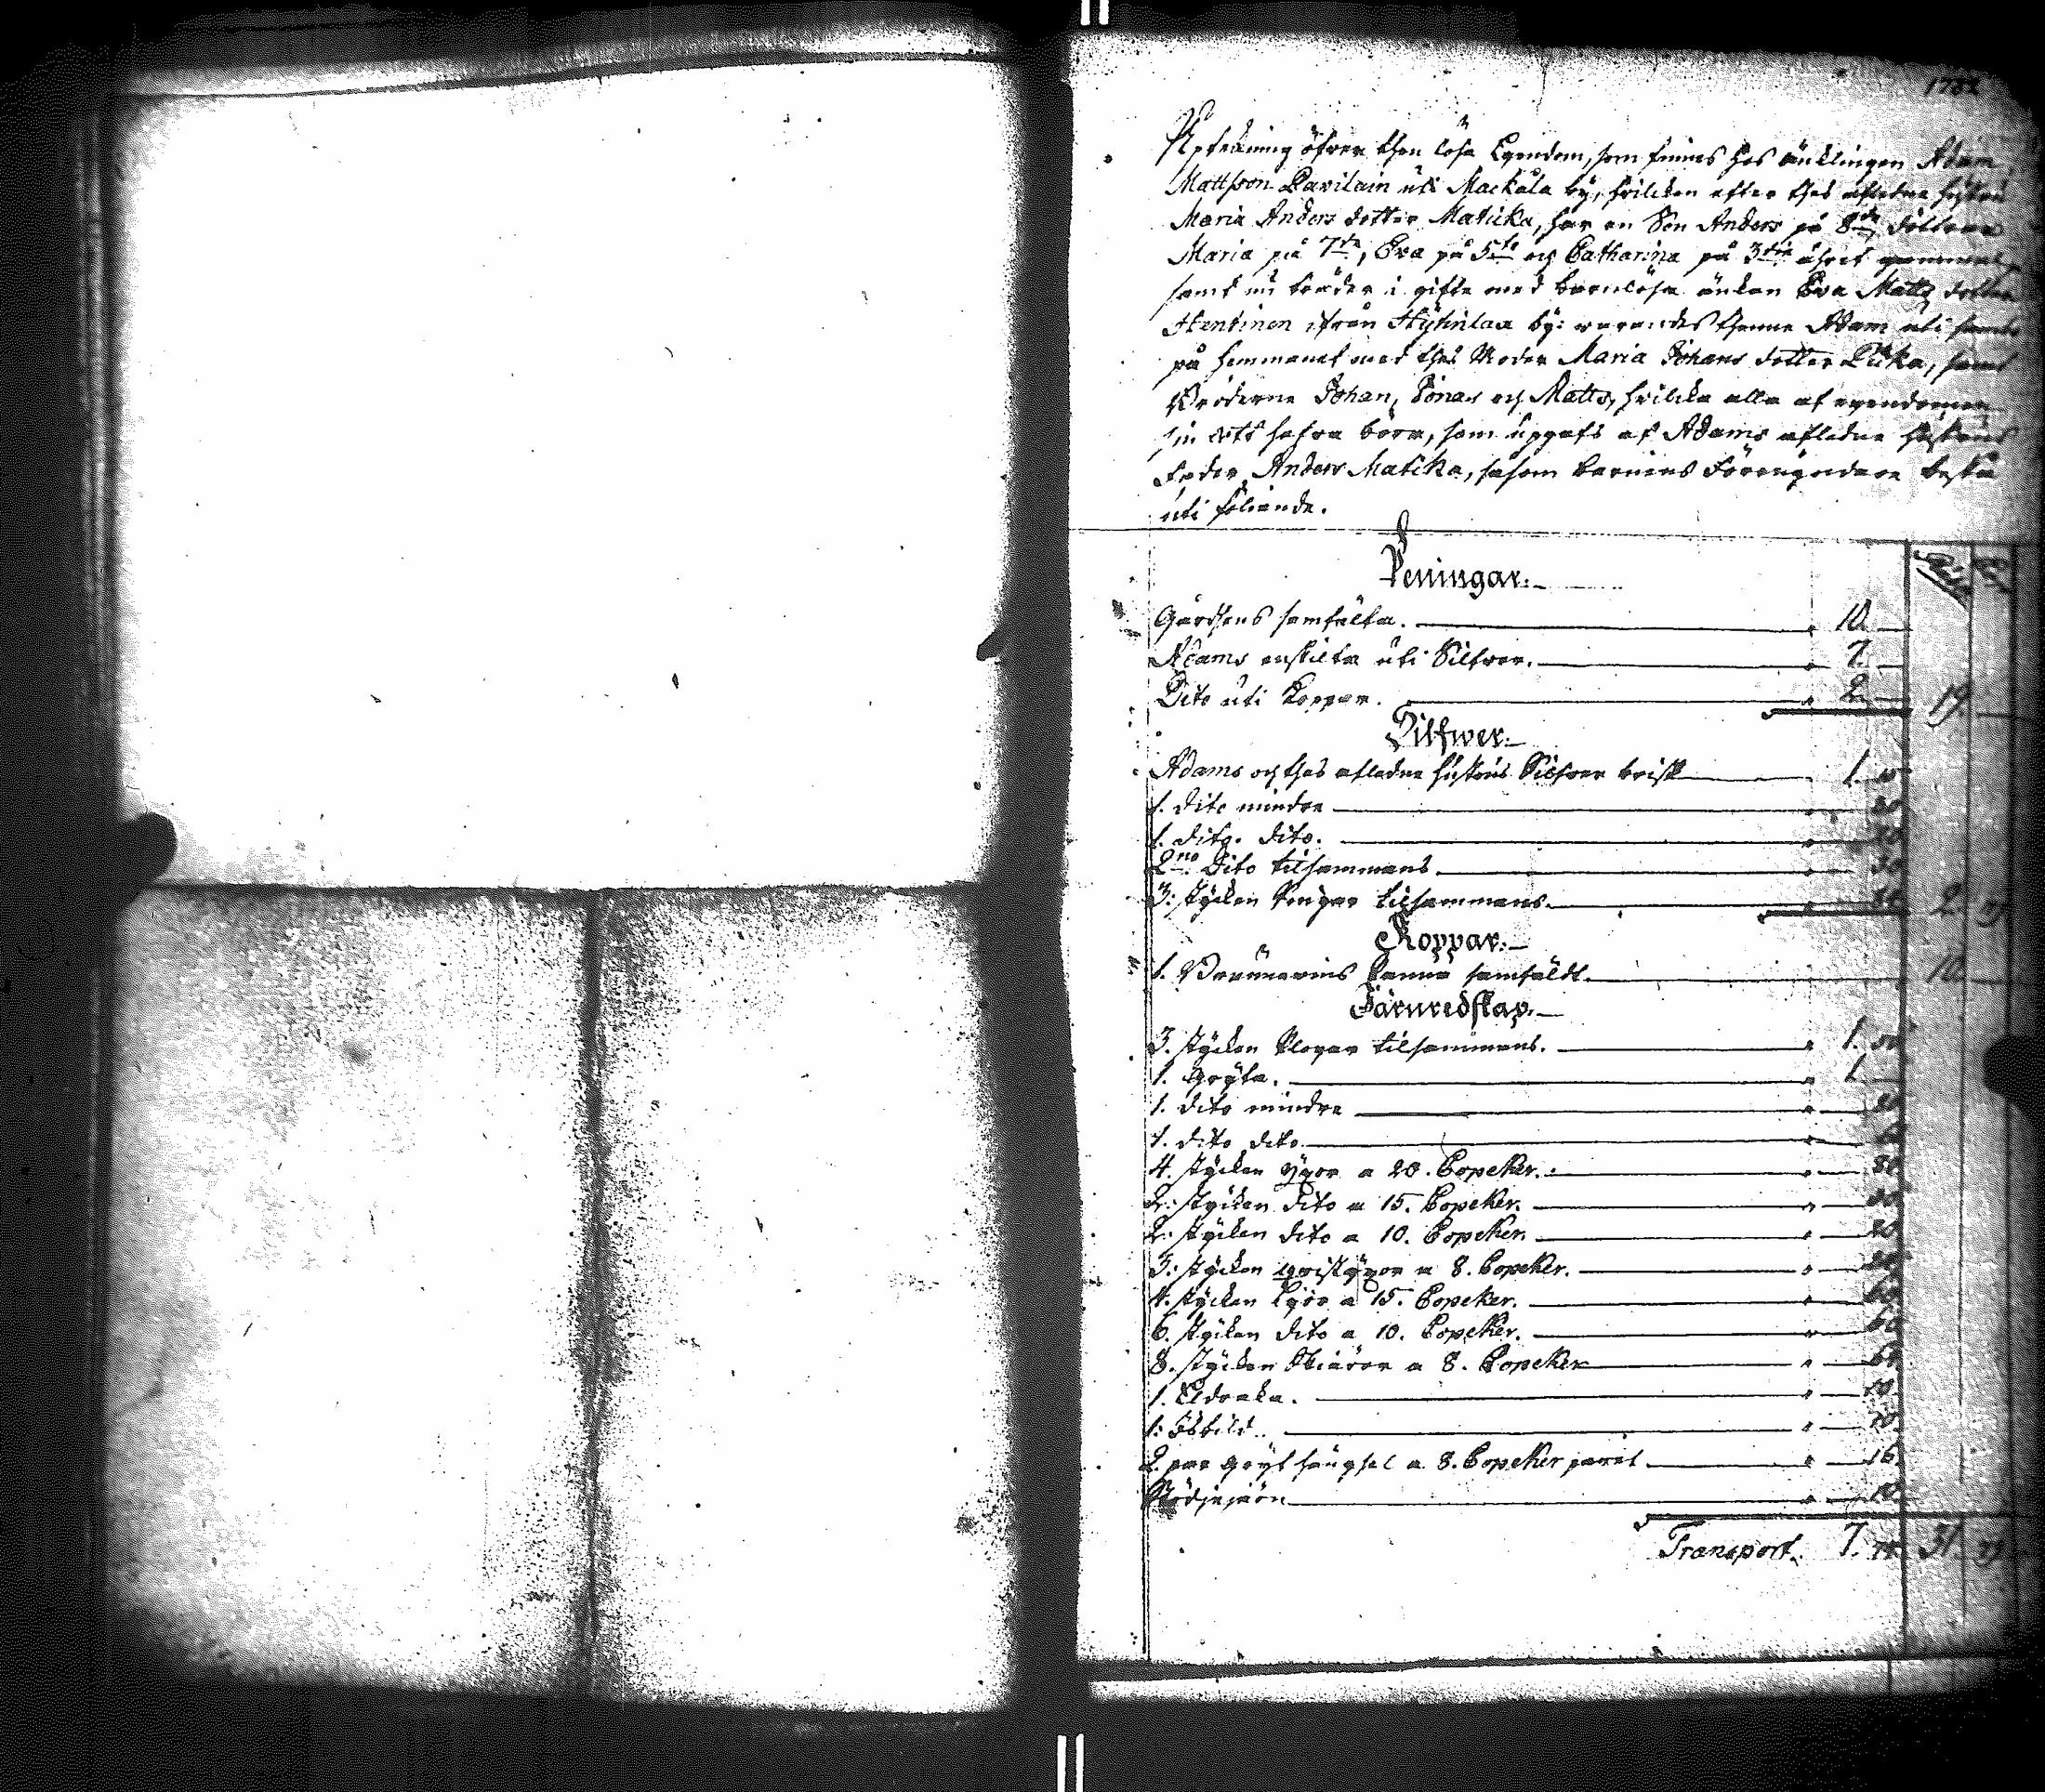 1782
Uptekning öfver then lösa Egendom, som finnes hos änklingen Adam
Mattsson Pavilain uti Mackala by, hvilcken efter thes aflednе hustru
Maria Anders dotter Maticka, har en Son Anders på 8de döttrar
Maria på 7de, Eva på 5te och Catharina på 3die åhret
samt nu träder i gifte med barnlösa änkan Eva Matts dotter
Hentinen ifrån by: varandes thenne Adam uti
på hemmanet med thes Moder Maria Johans dotter Picka, samt
Bröderne Johan, Jonas och Matts, hvilcka alla af egendomen
sin hafva böra, som uppgafs af Adams aflednе hustrus
Fader Anders Maticka, såsom barnens Förmyndare bestå
uti föliande.
Peningar:
Gårdsens samfälta. 10.
Adams enskilta uti Silfver. 7.
Dito uti Koppar. 2 19.
Silfwer:
Adams och thes aflednе hustrus Silfver brisk 1.
1. dito mindre
1. dito. dito.
2ne Dito tilsammans
3: stycken Ringar tilsammans. 2
Koppar:
1. Bränvins Panna samfäldt. 10
Järnredskap.
3. stycken Plogar tilsammans. 1. 50
1. Gryta. 1
1. dito mindre
1. dito dito
4. stycken yxor a 20. Copeker. 80
2: stycken dito a 15. Copeker. 30
2: stycken dito a 10. Copeker. 20
3: stycken a 8. Copeker. 24
4. stycken Lijor a 15. Copeker. 60
6. stycken dito a 10. Copeker. 60
8. stycken Skiäror a 8. Copeker 64
1. Eldraka. 10.
1. Isbill.
2. par gryt hängsel a 8. Copeker paret 16
10.
Transport. 7. 31.